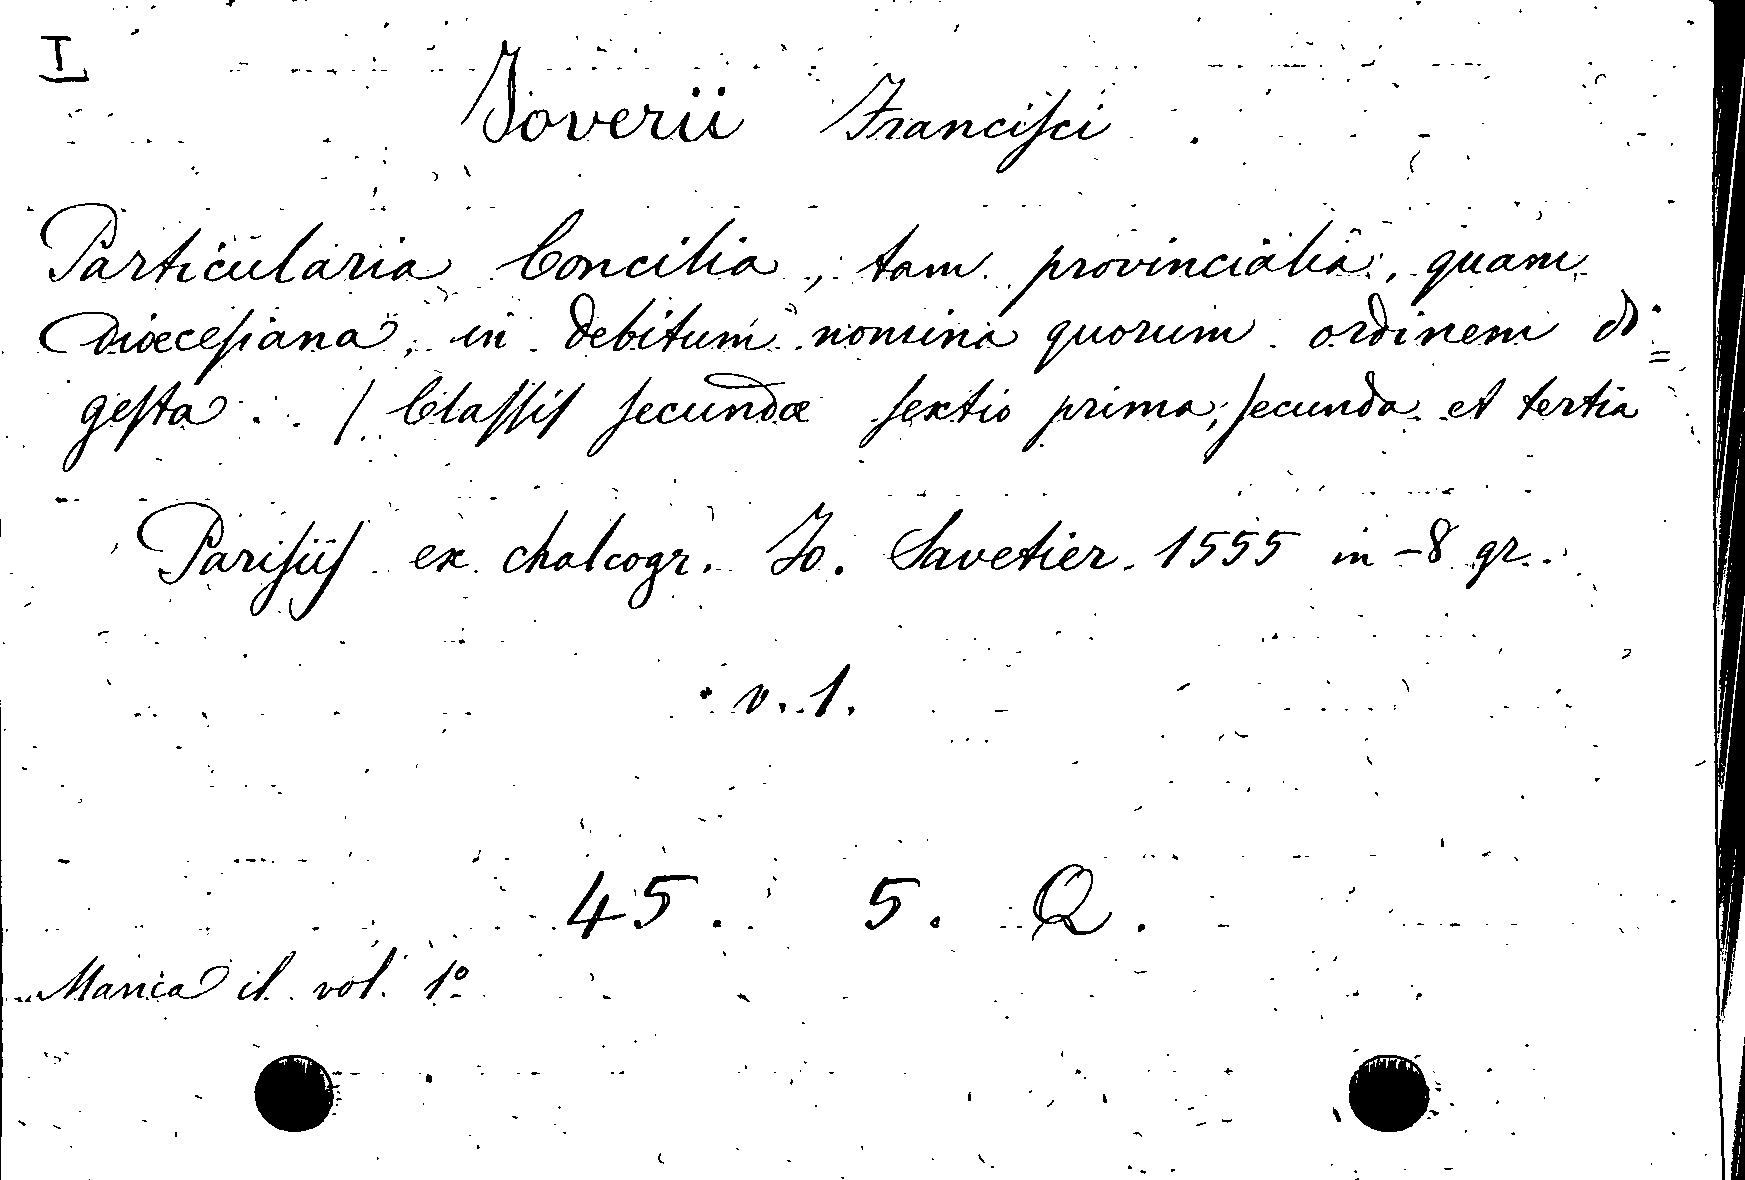 I
Joverii Francisci
Particularia Concilia, tam provincialia, quam
dioecesiana, in debitum nomina quorum ordinem di=
gesta. / Classis secundæ sextio prima, secunda et tertia
Parisiis ex chalcogr. Jo. Savetier. 1555 in-8 gr.
v. 1.
45. 5. Q.
Manca il vol. 1º